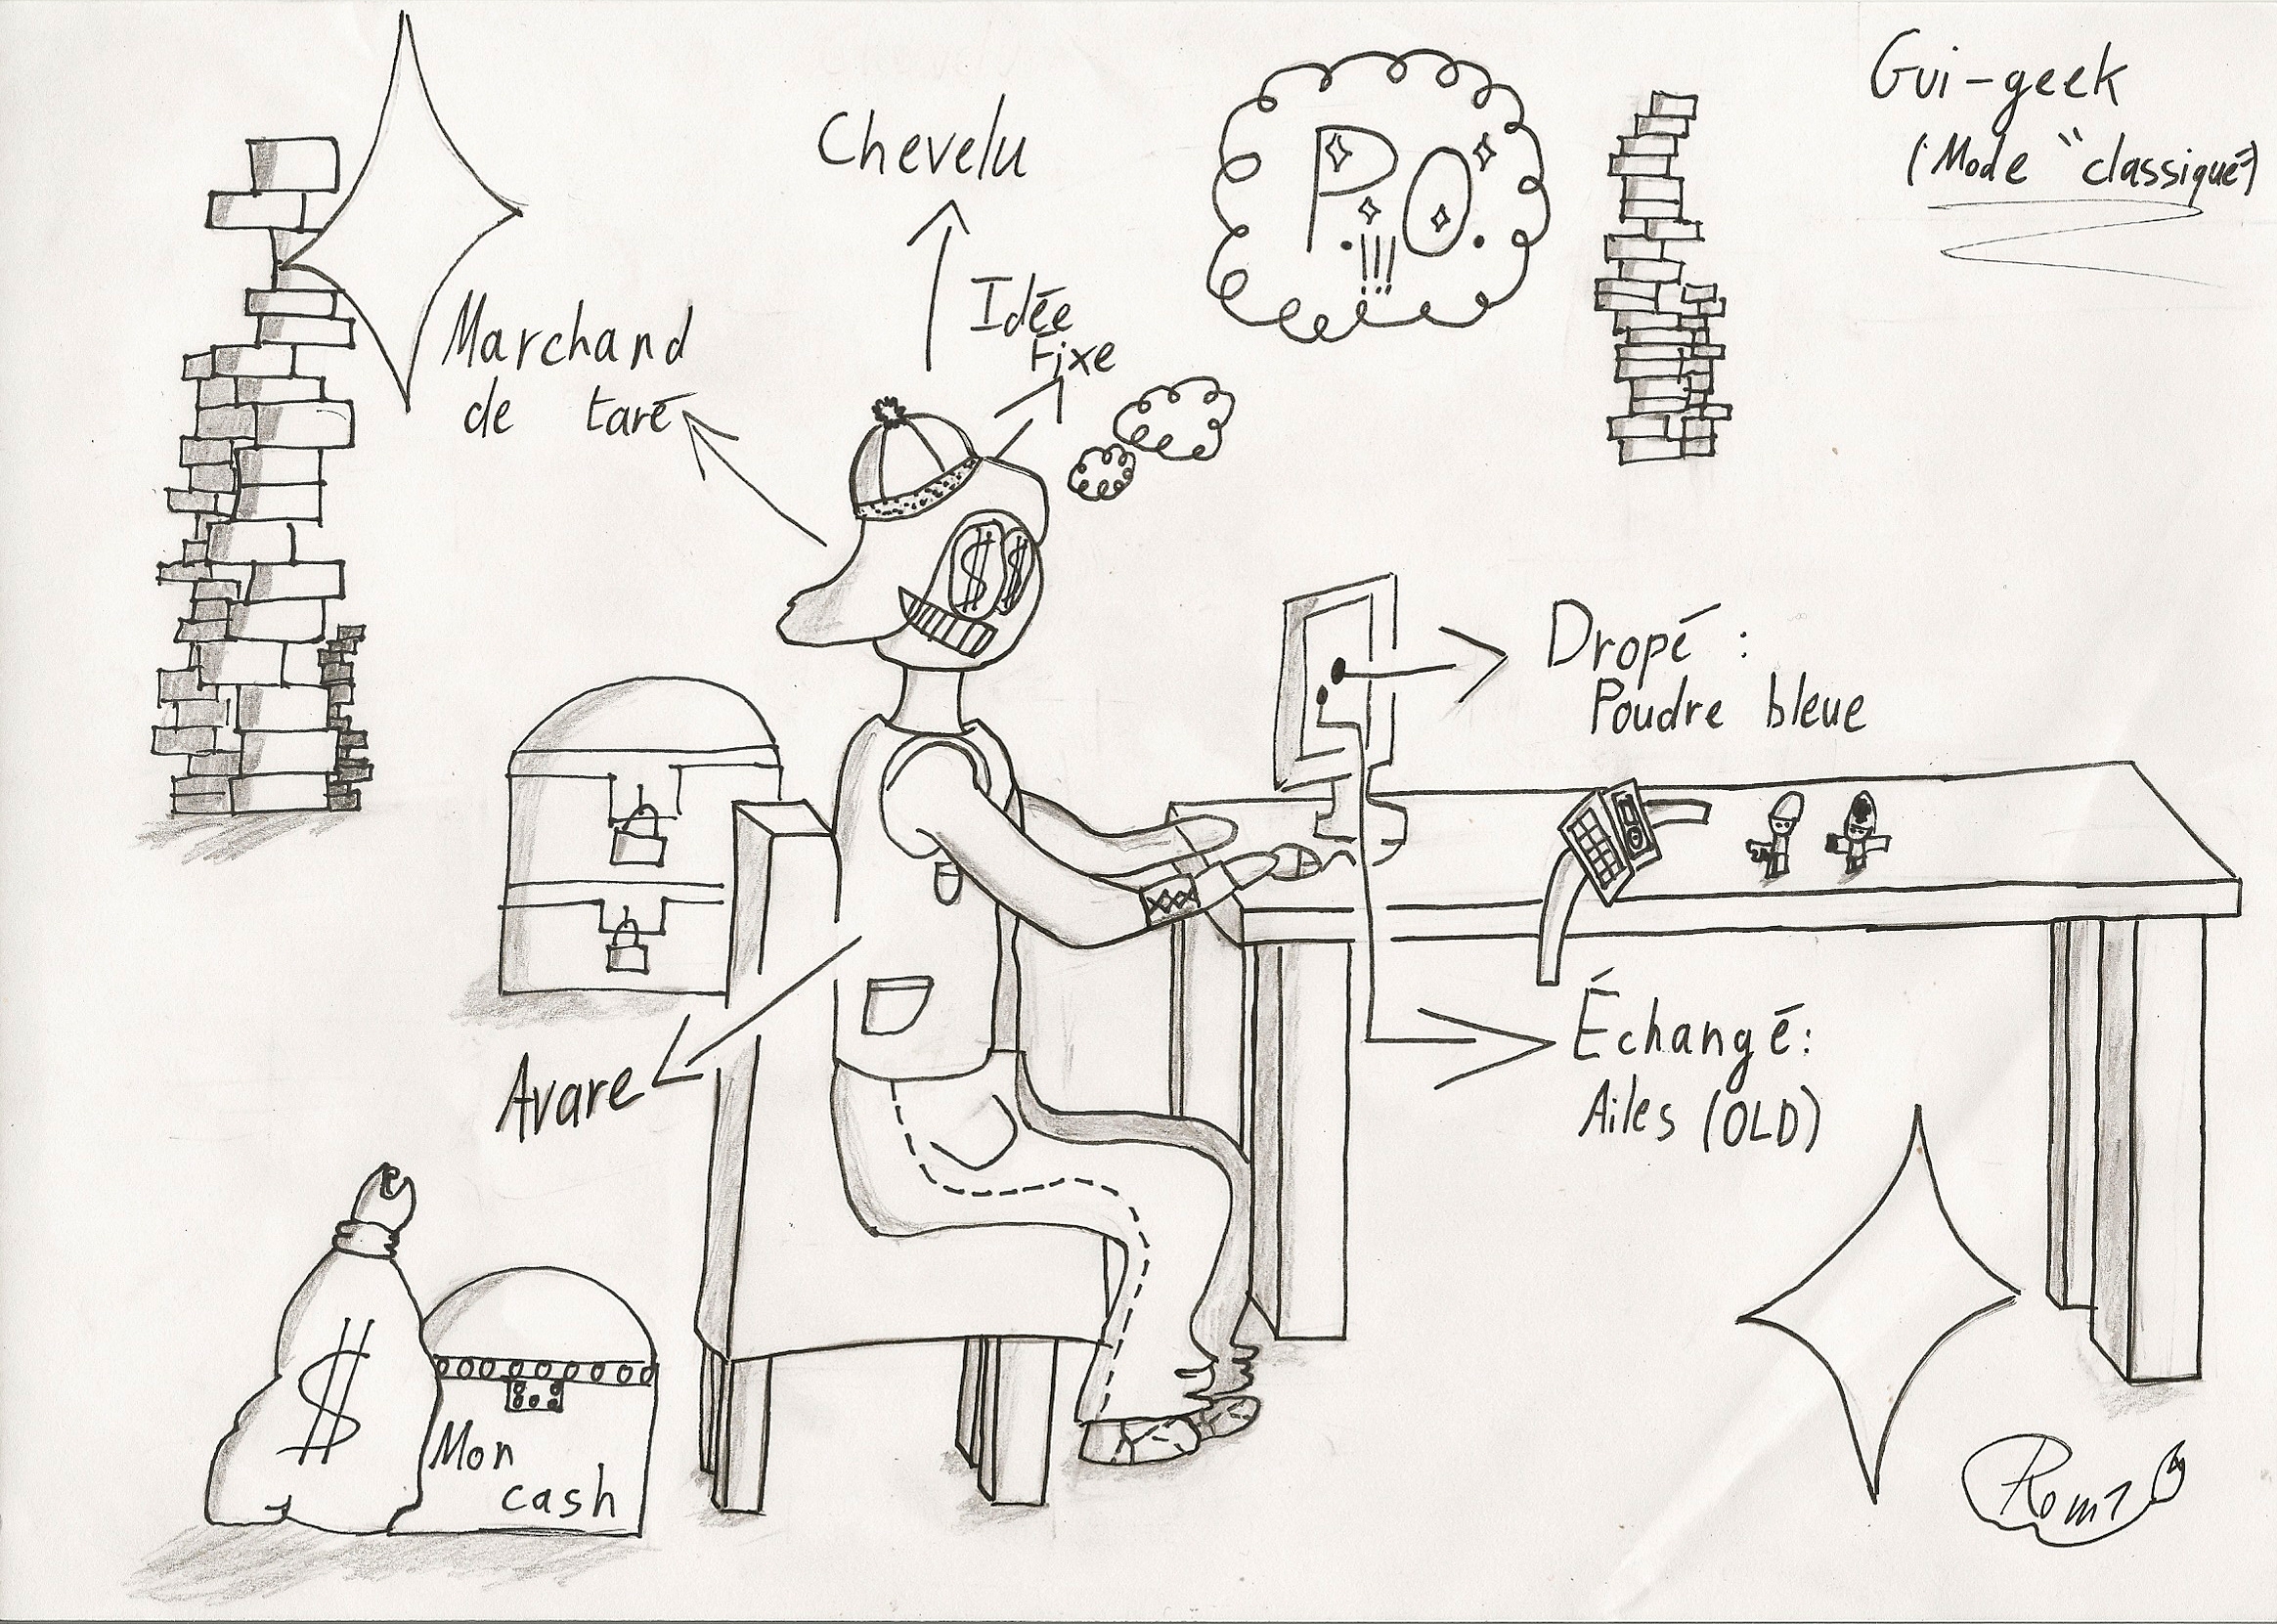 Gui-geek
(Mode "classique")
Chevelu
P.O.
!!!
Idée
Fixe
Marchand
de taré
$ $
Dropé :
Poudre bleue
Échangé :
Ailes (OLD)
Avare
$
Mon
cash
Rom1